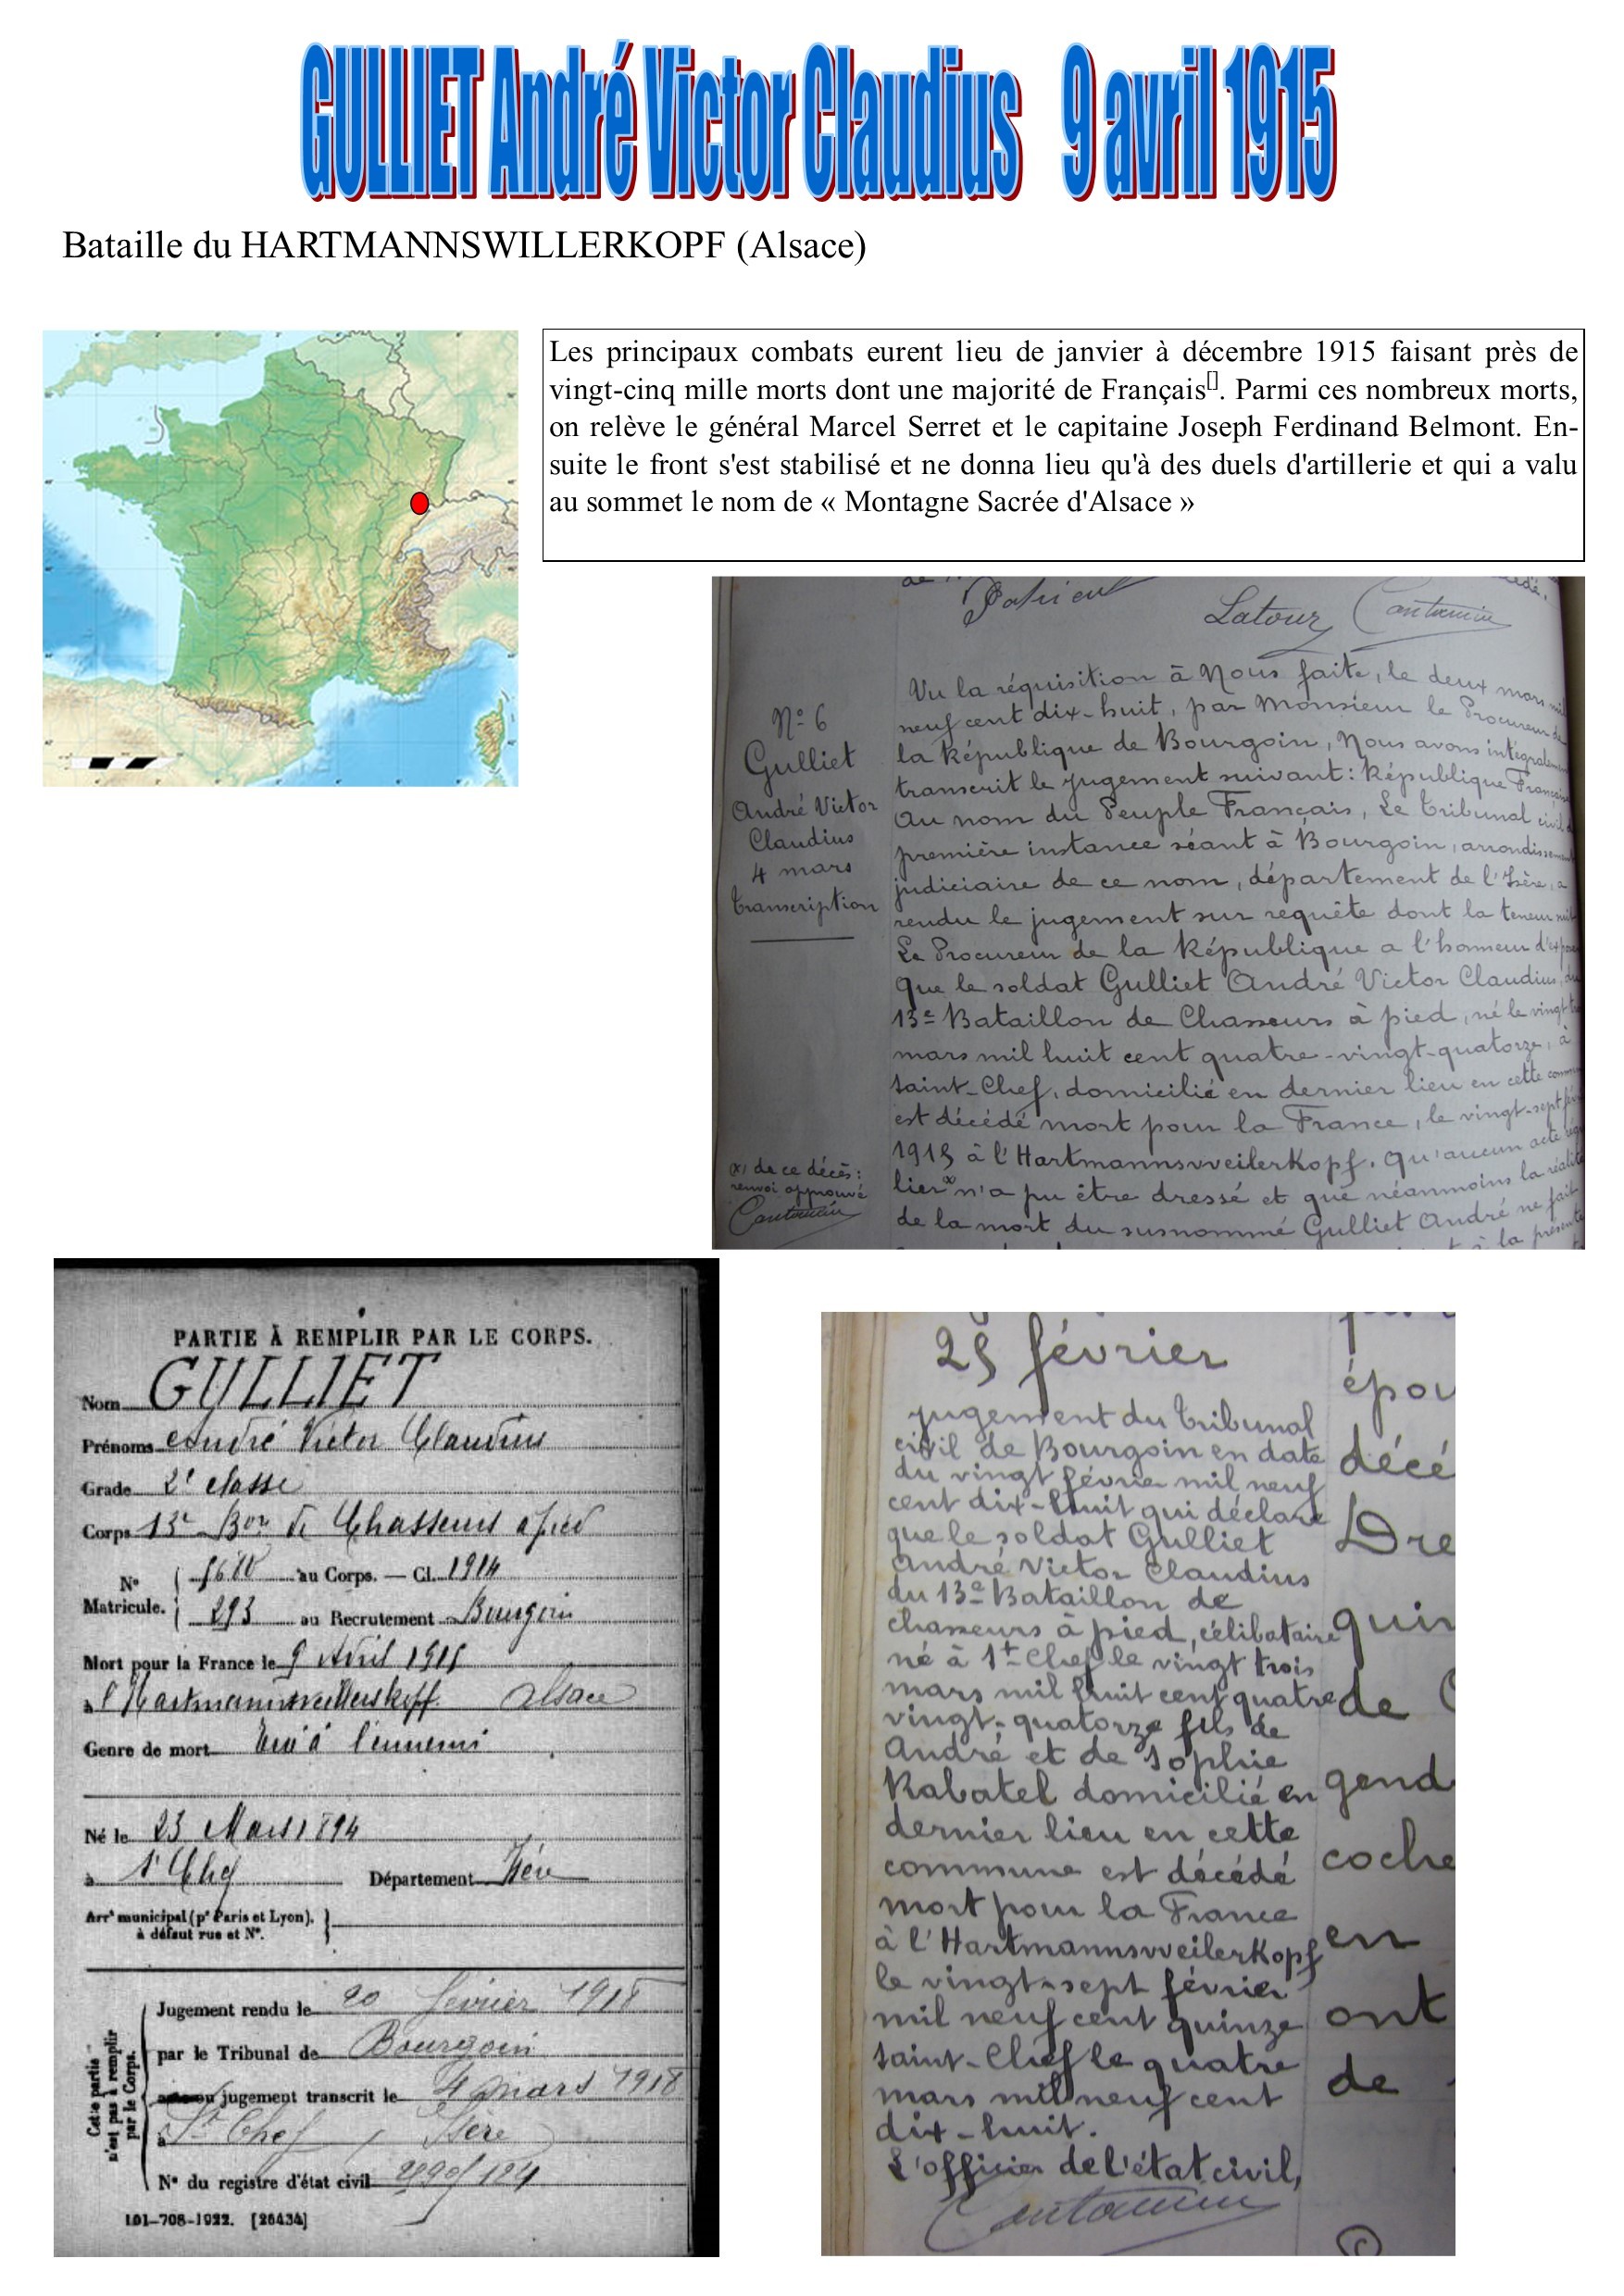 GULLIET André Victor Claudius 9 avril 1915
Bataille du HARTMANNSWILLERKOPF (Alsace)
Les principaux combats eurent lieu de janvier à décembre 1915 faisant près de
vingt-cinq mille morts dont une majorité de Français[]. Parmi ces nombreux morts,
on relève le général Marcel Serret et le capitaine Joseph Ferdinand Belmont. En-
suite le front s'est stabilisé et ne donna lieu qu'à des duels d'artillerie et qui a valu
au sommet le nom de « Montagne Sacrée d'Alsace »
Latour
N° 6
Gulliet
André Victor
Claudius
4 mars
transcription
(x) de ce décès:
renvoi approuvé
Vu la réquisition à Nous faite, le deux mars mil
neuf cent dix-huit, par Monsieur le Procureur de
la République de Bourgoin, Nous avons intégralement
transcrit le jugement suivant: République Française
Au nom du Peuple Français, Le tribunal civil de
première instance séant à Bourgoin, arrondissement
judiciaire de ce nom, département de l'Isère, a
rendu le jugement sur requête dont la teneur suit
Le Procureur de la République a l'honneur d'exposer
Que le soldat Gulliet André Victor Claudius, du
13e Bataillon de Chasseurs à pied, né le vingt
mars mil huit cent quatre-vingt-quatorze, à
Saint-Chef, domicilié en dernier lieu en cette
est décédé mort pour la France, le vingt-sept
1915 à l'Hartmannsweilerkopf. Qu'aucun acte
lier x n'a pu être dressé et que néanmoins la réalité
de la mort du susnommé Gulliet André ne fait
à la présente
PARTIE À REMPLIR PAR LE CORPS.
Nom GULLIET
Prénoms André Victor Claudius
Grade 2e classe
Corps 13e Bon de Chasseurs à pied
N° Matricule. { au Corps. — Cl. 1914
293 au Recrutement Bourgoin
Mort pour la France le 9 Avril 1915
à l'Hartmannsweillerskopf. Alsace
Genre de mort Tué à l'ennemi
Né le 23 Mars 1894
à St Chef Département Isère
Arrt municipal (pr Paris et Lyon), à défaut rue et N°. }
Cette partie n'est pas à remplir par le Corps.
Jugement rendu le 20 février 1918
par le Tribunal de Bourgoin
ou jugement transcrit le 4 mars 1918
à St Chef, Isère
N° du registre d'état civil
101-708-1922. [26434]
25 février
jugement du tribunal
civil de Bourgoin en date
du vingt février mil neuf
cent dix-huit qui déclare
que le soldat Gulliet
André Victor Claudius
du 13e Bataillon de
chasseurs à pied, célibataire
né à St-Chef le vingt trois
mars mil huit cent quatre
vingt-quatorze fils de
André et de Sophie
Rabatel domicilié en
dernier lieu en cette
commune est décédé
mort pour la France
à l'Hartmannsweilerkopf
le vingt-sept février
mil neuf cent quinze
Saint-Chef le quatre
mars mil neuf cent
dix-huit.
L'officier de l'état civil,
épou
décé
Dre
quin
de
gend
coche
en
ont
de